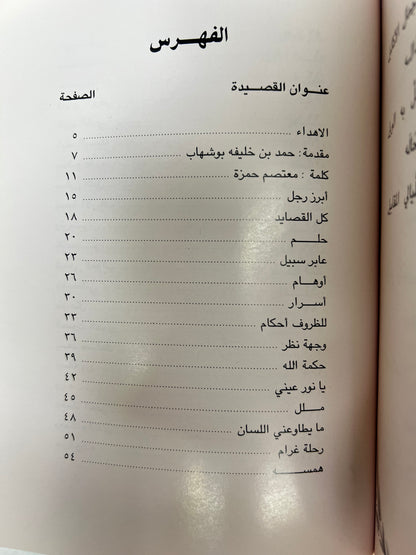 الفهـــرس
عنـــوان القصـــيدة الـصفحة
الاهداء ٥
مقدمة: حمد بن خليفه بوشهاب ٧
كلمة : معتصم حمزة ١١
أبرز رجل ١٥
كل القصايد ١٨
حلـــم ٢٠
عابر سبيل ٢٣
أوهـام ٢٦
أســـرار ٣٠
للظروف أحكام ٣٣
وجهة نظر ٣٦
حكمة الله ٣٩
يا نور عيني ٤٢
مـــلل ٤٥
ما يطاوعني اللسان ٤٨
رحلة غرام ٥١
همســـه ٥٤